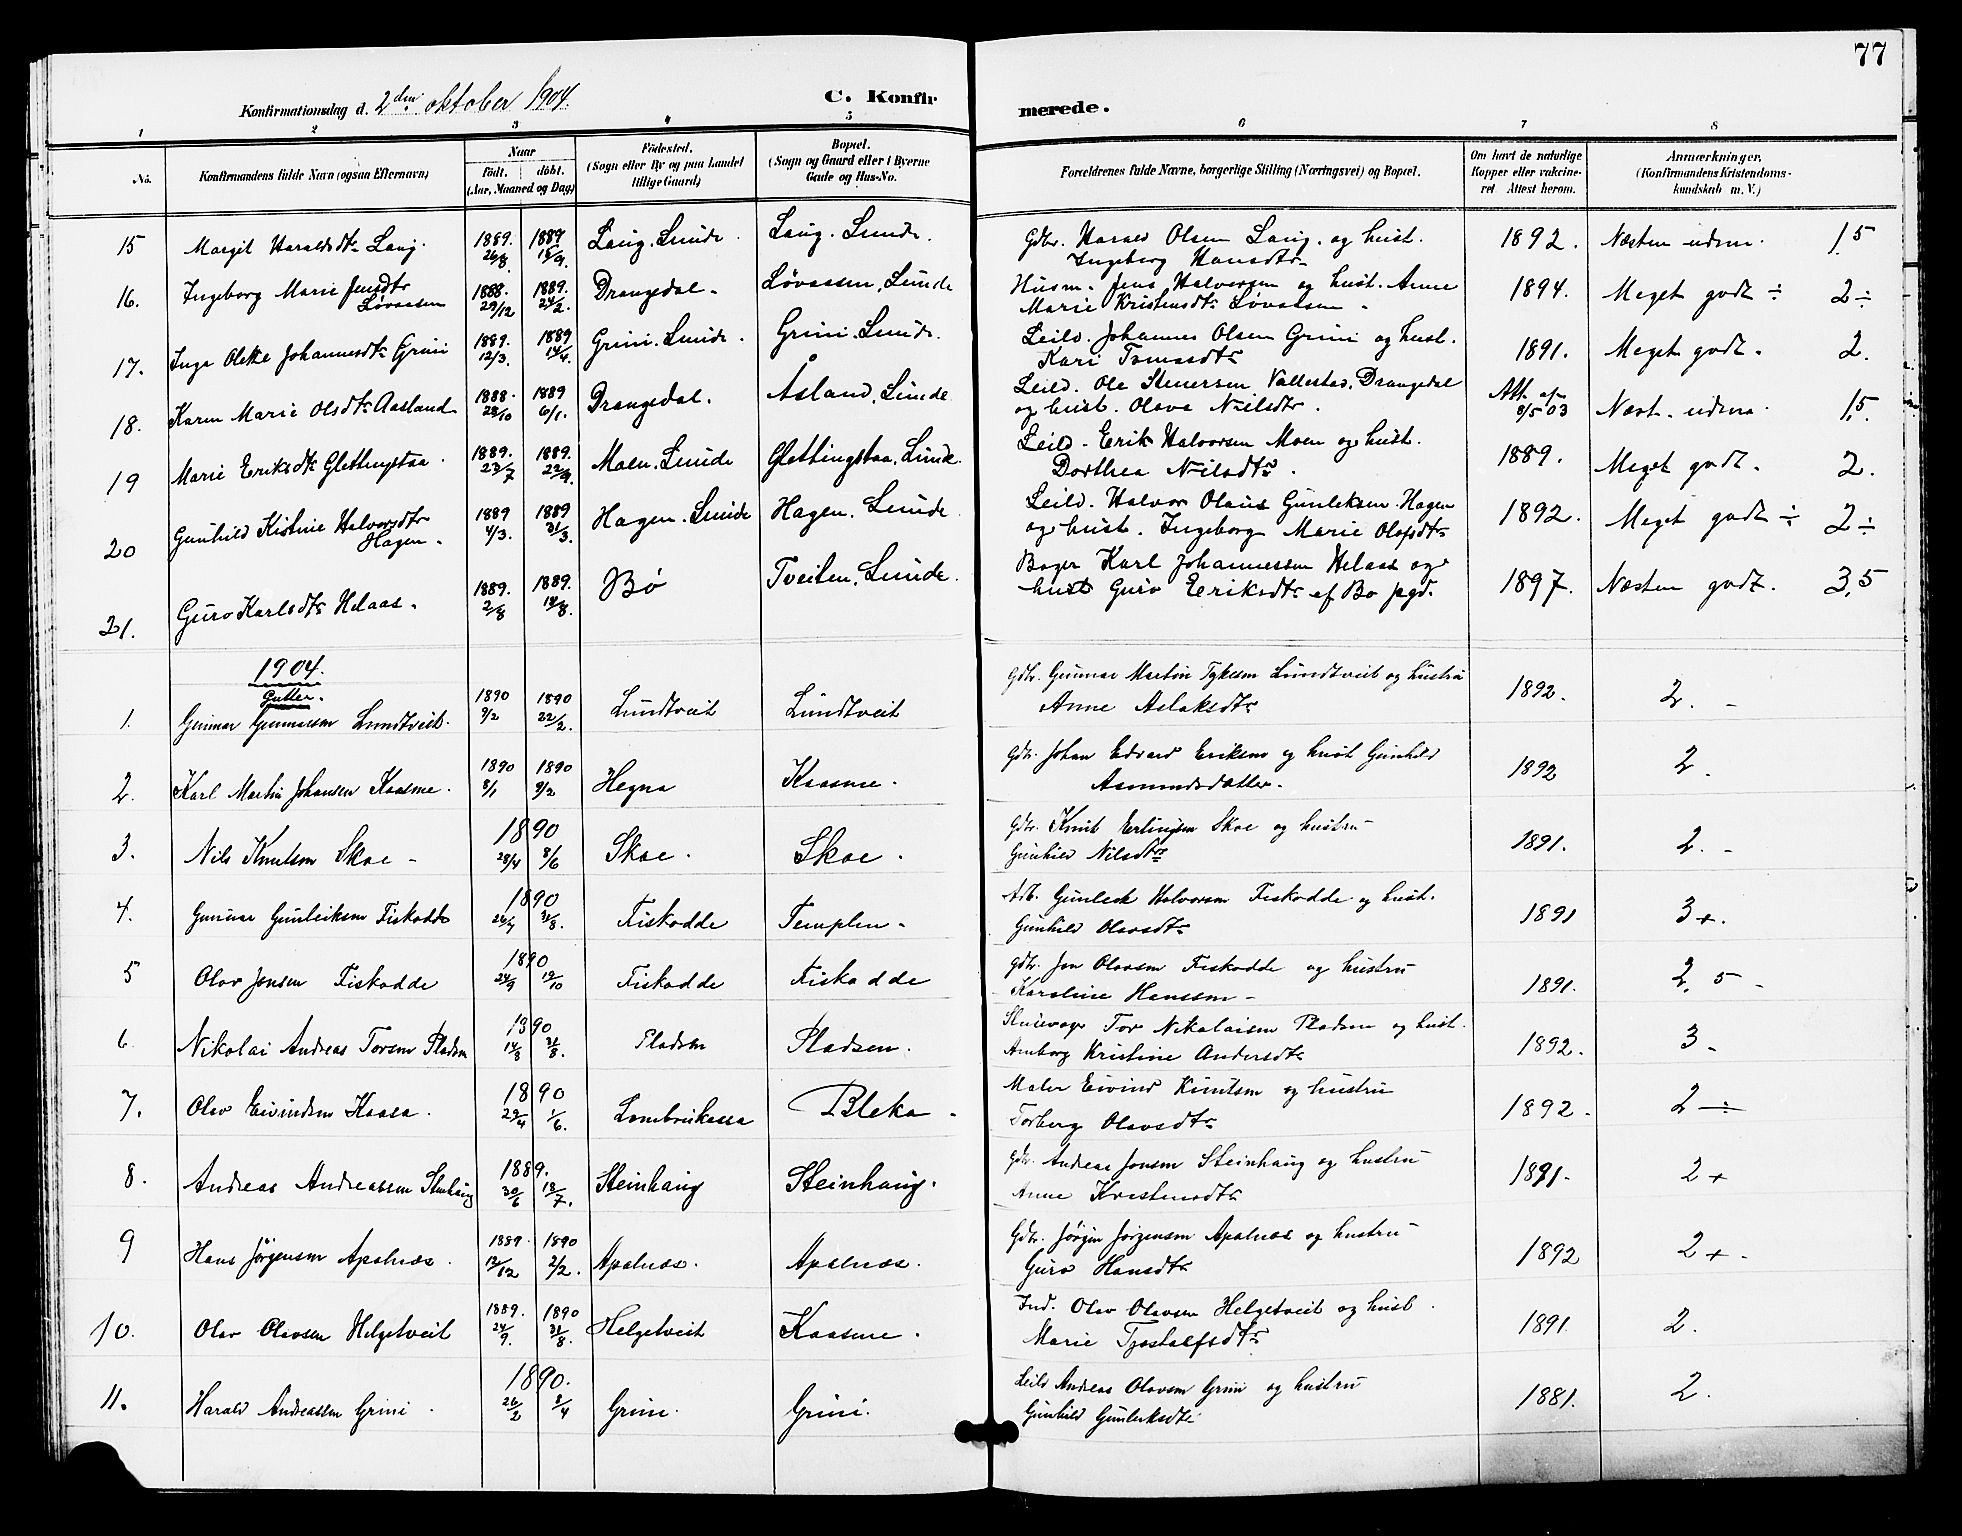 77
Konfirmationsdag d. 2den oktober 1904.
C. Konfirmerede.
1 2 3 4 5 6 7 8
No. Konfirmandens fulde Navn (ogsaa Efternavn) Naar født. døbt. (Aar, Maaned og Dag) Fødested. (Sogn eller By og paa Landet tillige Gaard) Bopæl. (Sogn og Gaard eller i Byerne Gade og Hus-No. Forældrenes fulde Navne, borgerlige Stilling (Næringsvei) og Bopæl. Om havt de naturlige Kopper eller vaccineret. Attest herom. Anmærkninger. (Konfirmandens Kristendomskundskab m. V.)
15 Margit Haraldsdtr Laug. 1889. 26/8. 1889 15/9. Laug. Lunde. Laug. Lunde. Gdbr. Harald Olsen Laug. og hust. Ingeborg Hansdtr 1892. Næsten udm. 1,5
16. Ingeborg Marie Jensdtr Løvaasen 1888. 29/12 1889. 24/2. Drangedal. Løvaasen, Lunde Husm. Jens Halvorsen og hust. Anne Marie Kristensdtr Løvaasen 1894. Meget godt ÷ 2÷
17. Inge Olette Johannesdtr Grini 1889. 12/3. 1889 14/4. Grini. Lunde. Grini. Lunde. Leild. Johannes Olsen Grini og hust. Kari Tomasdtr 1891. Meget godt. 2.
18. Karen Marie Olsdtr Aasland 1888. 28/10 1889 6/1. Drangedal. Åsland, Lunde Leild. Ole Stenersen Vallestad, Drangedal og hust. Olava Nilsdtr. Att. af 8/5 03 Næst. udm. 1,5.
19 Marie Eriksdtr Glettingstaa. 1889. 23/7 1889. 22/9. Moen. Lunde Glettingstaa, Lunde. Leild. Erik Halvorsen Moen og hust. Dorthea Nilsdtr. 1889. Meget godt. 2.
20 Gunhild Kistine Halvorsdtr Hagen. 1889 4/3. 1889 31/3. Hagen. Lunde Hagen. Lunde Leild. Halvor Olaus Gunleksen Hagen og hust. Ingeborg Marie Olafsdtr 1892. Meget godt ÷ 2÷
21. Guro Karlsdtr Helaas. 1889. 2/8 1889. 14/8. Bø Tveiten. Lunde. Bager Karl Johannessen Helaas og hust Guro Eeriksdtr af Bø pgd. 1897. Næsten godt. 3,5
1904.
Gutter.
1. Gunnar Gunnarsen Lundtveit. 1890 9/2 1890 22/2. Lundtveit Lundtveit Gdbr. Gunnar Martin Tykesen Lundtveit og hustru Anne Aslaksdtr 1892. 2.
2. Karl Martin Johansen Kaasene. 1890 8/1 1890 9/2 Hegna Kaasene. Gdbr. Johan Edvard Eriksen og hust Gunhild Asmundsdatter. 1892 2.
3. Nils Knutsen Skoe 1890 28/4 8/6 Skoe. Skoe. Gdbr. Knut Erlingsen Skoe og hustru Gunhild Nilsdtr 1891. 2.
4. Gunnar Gunleiksen Fiskodde 1890 26/7 31/8. Fiskodde Templen. Arb. Gunleik Halvorsen Fiskodde og hust. Gunhild Olavsdtr 1891 3+.
5 Olav Jonsen Fiskodde 1890 24/9 19/10 Fiskodde Fiskodde Gdbr. Jon Olavsen Fiskodde og hustru Karoline Hanssen 1891. 2,5
6. Nikolai Andreas Torsen Pladsen 1890 14/8 31/8. Pladsen Pladsen. Tor Nikolaisen Pladsen og hust. Amborg Kristine Andersdtr 1892. 3
7. Olav Eivindsen Kaasa. 1890 29/4 1/6. Bleka. Maler Eivind Knutsen og hustru Torberg Olavsdtr 1892. 2÷
8. Andreas Andreassen Steinhaug 1889. 30/6 18/7. Steinhaug Steinhaug. Gdbr. Andreas Jonsen Steinhaug og hustru Anne Kristensdtr 1891. 2+
9 Hans Jørgensen Apalnæs. 1889. 12/12 1890 2/2. Apalnæs. Apalnæs. Gdbr. Jørgen Jørgensen Apalnæs og hustru Guro Hansdtr 1892 2+.
10. Olav Olavsen Helgetveit 1889. 24/9. 1890 31/8. Helgetveit Kaasene. Ind. Olav Olavsen Helgetveit og hust. Marie Tjostolfsdtr 1891. 2.
11. Harald Andreassen Grini. 1890. 26/2 8/4 Grini. Grini. Leild Andreas Olavsen Grini og hustru Gunhild Gunleksdtr 1881. 2.